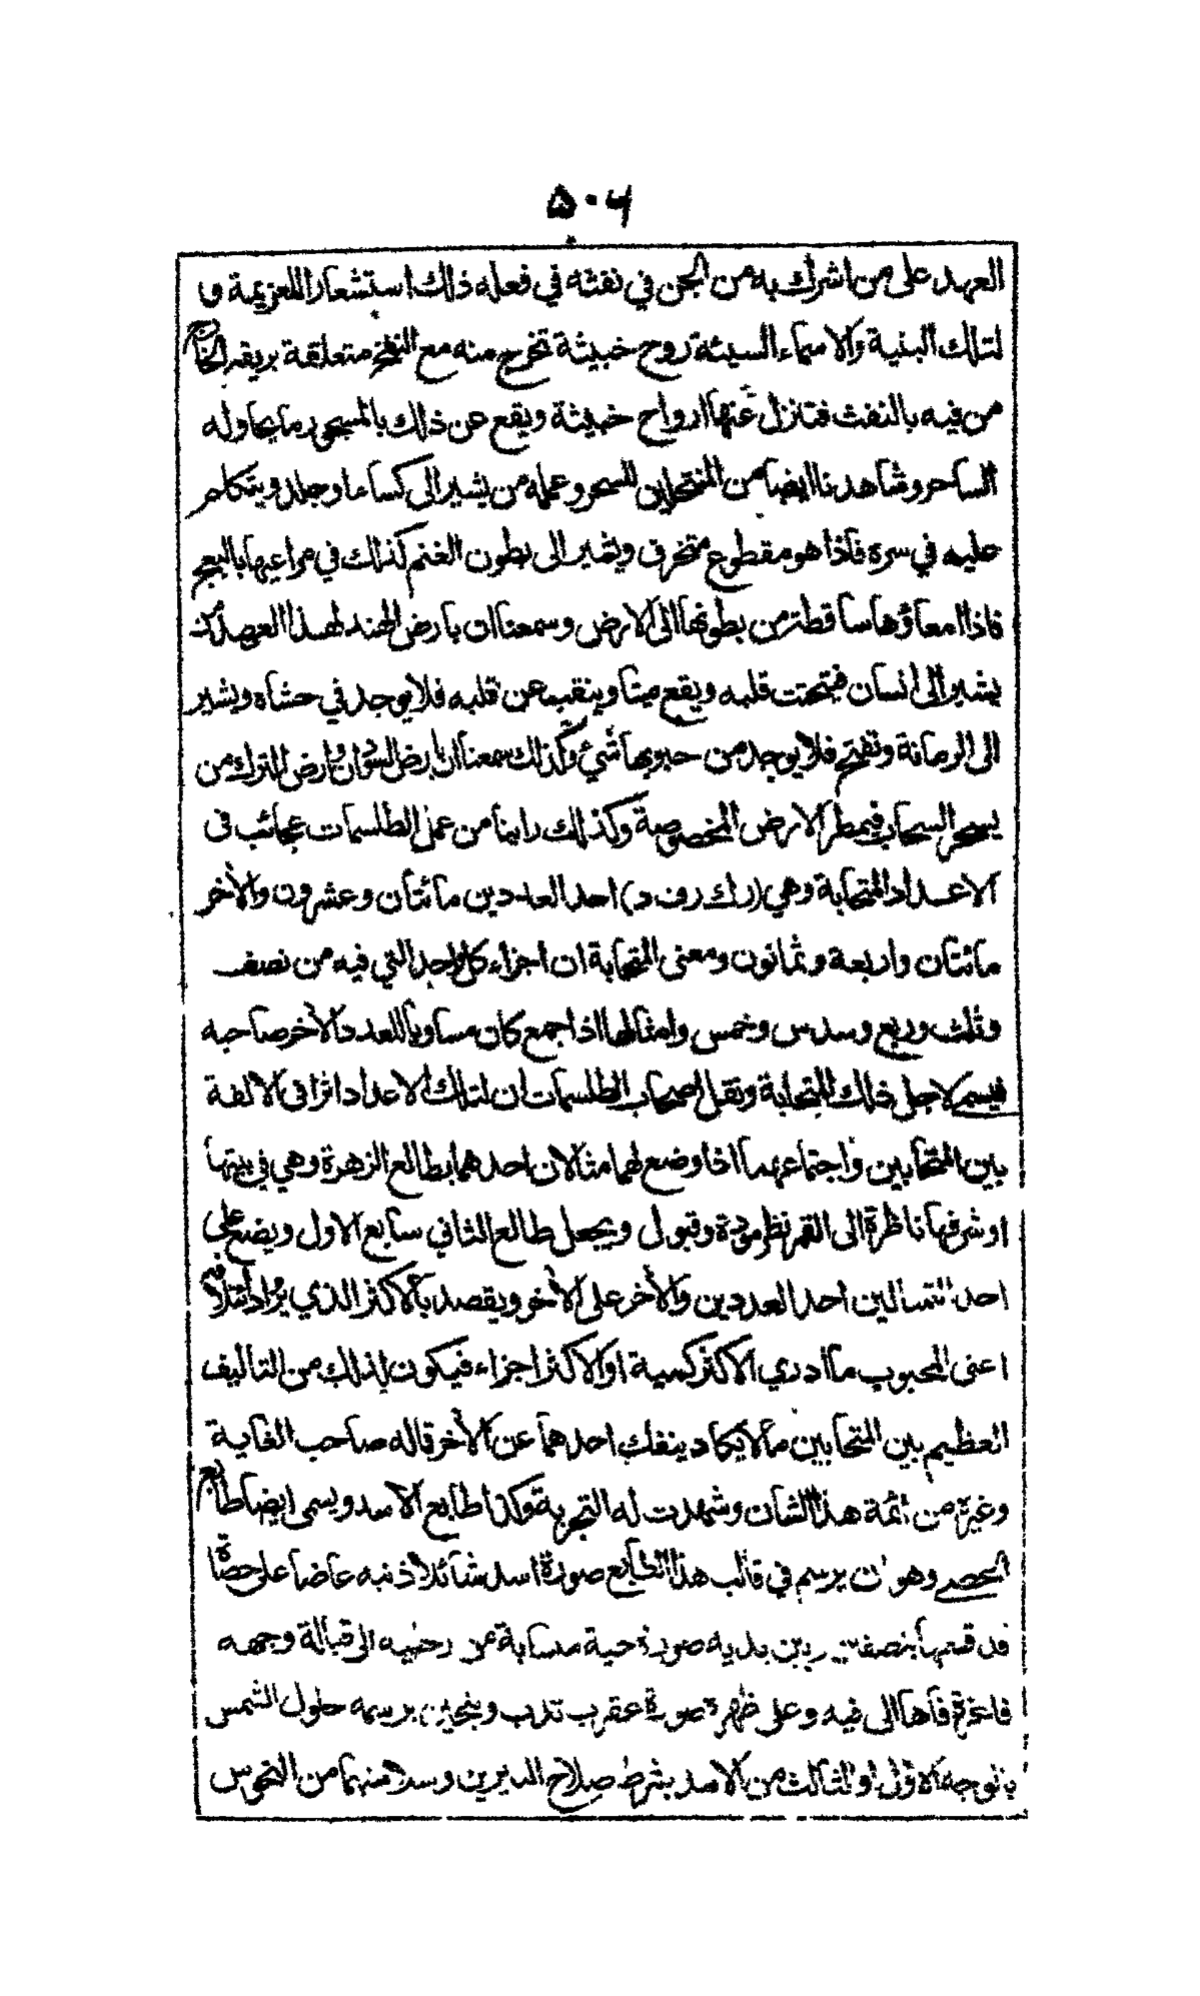 ۵۰۶
العهد على من اشرك به من الجن في نفثه في فعله ذلك استشعارا للعزيمة و
لتلك البنية والاسماء السيئة روح خبيثة تخرج منه مع النفخ متعلقة بريقه الخارج
من فيه بالنفث فتنزل عنها ارواح خبيثة ويقع عن ذلك بالمسحور ما يحاوله
الساحر وشاهدنا ايضا من المنتحلين للسحر وعمله من يشير الى كساء او جلد ويتكلم
عليه في سره فاذا هو مقطوع متخرق ويشير الى بطون الغنم كذلك في مراعيها بالبعج
فاذا امعاؤها ساقطة من بطونها الى الارض وسمعنا ان بارض الهند لهذا العهد من
يشير الى انسان فيتحتت قلبه ويقع ميتا وينقب عن قلبه فلا يوجد في حشاه ويشير
الى الرمانة وتفتح فلا يوجد من حبوبها شيء وكذلك سمعنا ان بارض السودان وارض الترك من
يسحر السحاب فيمطر الارض المخصوصة وكذلك راينا من عمل الطلسمات عجائب في
الاعداد المتحابة وهي (رك رف د) احد العددين مائتان وعشرون والآخر
مائتان واربعة وثمانون ومعنى المتحابة ان اجزاء كل واحد التي فيه من نصف
وثلث وربع وسدس وخمس وامثالها اذا جمع كان مساويا للعدد الآخر صاحبه
فيسمى لاجل ذلك المتحابة ونقل اصحاب الطلسمات ان لتلك الاعداد اثرا في الالفة
بين المتحابين واجتماعهما اذا وضع لهما مثالان احدهما بطالع الزهرة وهي في بيتها
او شرفها ناظرة الى القمر نظر مودة وقبول ويجعل طالع الثاني سابع الاول ويضع على
احد التمثالين احد العددين والآخر على الآخر ويقصد بالاكثر الذي يراد ائتلافه
اعني المحبوب ما ادري الاكثر كمية او الاكثر اجزاء فيكون لذلك من التاليف
العظيم بين المتحابين ما لا يكاد ينفك احدهما عن الآخر قاله صاحب الغاية
وغيره من ائمة هذا الشان وشهدت له التجربة وكذا طابع الاسد ويسمى ايضا طابع
الحصى وهو ان يرسم في قالب هذا الطابع صورة اسد شائلا ذنبه عاضا على حصاة
قد قسمها بنصفين وبين يديه صورة حية منسابة من رجليه الى قبالة وجهه
فاغرة فاها الى فيه وعلى ظهره صورة عقرب تدب ويتحين برسمه حلول الشمس
بالوجه الاول او الثالث من الاسد بشرط صلاح النيرين وسلامتهما من النحوس